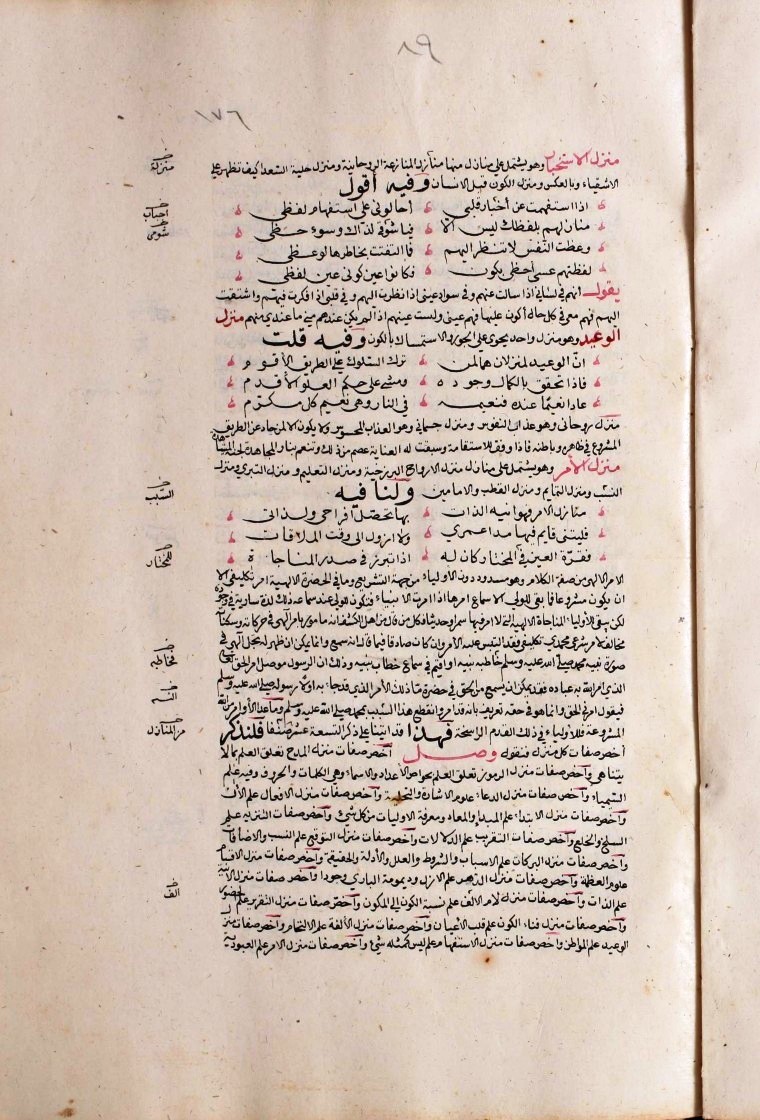 ٨٩
١٧٦
منزل الاستخبار وهو يشتمل على منازل منها منازل المنازعة الروحانية ومنزل حلية السعداء كيف تظهر على
الاشقياء وبالعكس ومنزل الكون قبل الانسان وفيه أقول
اذا استفهمت عن أحباب قلبي أحالوني على استفهام لفظي
منازلهم بلفظك ليس الا فيا شؤمي لذاك وسوء حظي
وعظت النفس لا تنظر اليهم فما التفتت بخاطرها لوعظي
لفظتهم عسى احظى بكون فكانوا عين كوني عين لفظي
يقول انهم في لساني اذا سالت عنهم وفي سواد عيني اذا نظرت اليهم وفي قلبي اذا فكرت فيهم واشتقت
اليهم فهم معي في كل حالة أكون عليها فهم عيني ولست عينهم اذ لم يكن عندهم مني ما عندي منهم منزل
الوعيد وهو منزل واحد يحوي على الجور والاستمساك بالكون وفيه قلت
انّ الوعيد لمنزلان هما لمن ترك السلوك على الطريق الأقوم
فاذا تحقق بالكمال وجوده ومشى على حكم العلو الأقدم
عادا نعيما عنده فنعيمه في النار وهي نعيم كل مكرّم
منزل روحاني وهو عذاب النفوس ومنزل جسماني وهو العذاب المحسوس ولا يكون الا لمن حاد عن الطريق
المشروع في ظاهره وباطنه فاذا وفق للاستقامة وسبقت له العناية عصم من ذلك وتنعم بنار المجاهدة لجنة المشاهدة
منزل الأمر وهو يشتمل على منازل منزل الارواح البرزخية ومنزل التعليم ومنزل السرى ومنزل
النسب ومنزل التمايم ومنزل القطب والامامين ولنا فيه
منازل الامر فهوانية الذات بها تحصل أفراحي ولذاتي
فليتني قايم فيها مدا عمري ولا ازول الى وقت الملاقات
فقرّة العين في المختار كان له اذا تبرز في صدر المناجاة
الامر الالهي من صفة الكلام وهو مسدود دون الأولياء من جهة التشريع وما في الحضرة الالهية امر تكليفي الا
ان يكون مشروعا فما بقي للولي الا سماع امرها اذا امرت الانبياء فيكون للولي عند سماعه ذلك لذة سارية في وجوده
لكن يبقى للأولياء المناجاة الالهية التي لا امر فيها سمرا وحديثا فكل من قال من اهل الكشف انه مأمور بامر الهي في حركاته وسكناته
مخالف لامر شرعي محمدي تكليفي فقد التبس عليه الأمر وان كان صادقا فيما قال انه سمع وانما يمكن ان ظهر له تجل الهي في
صورة نبيه محمد صلى الله عليه وسلم خاطبه نبيه او اقيم في سماع خطاب نبيه وذلك ان الرسول موصل امر الحق تعالى
الذي امر الله به عباده فقد يمكن ان يسمع من الحق في حضرة ما ذلك الأمر الذي قد جاء به اولا رسوله صلى الله عليه وسلم
فيقول امرني الحق وانما هو في حقه تعريف بانه قد امر وانقطع هذا السبب بمحمد صلى الله عليه وسلم وما عدا الأوامر من الله
المشروعة فللأولياء في ذلك القدم الراسخة فهذا قد اتينا على ذكر التسعة عشر صنفا فلنذكر
أخص صفات كل منزل فنقول وصل أخص صفات منزل المدح تعلق العلم بما لا
يتناهى وأخص صفات منزل الرموز تعلق العلم بخواص الأعداد والأسماء وهي الكلمات والحروف وفيه علم
السيمياء وأخص صفات منزل الدعاء علوم الاشارة والتحلية وأخص صفات منزل الافعال علم الآن
وأخص صفات منزل الابتداء علم المبدأ والمعاد ومعرفة الاوليات من كل شيء وأخص صفات التنزيه علم
السلخ والخلع وأخص صفات التقريب علم الدلالات وأخص صفات منزل التوقع علم النسب والاضافات
وأخص صفات منزل البركات علم الاسباب والشروط والعلل والأدلة والحقيقة وأخص صفات منزل الاقسام
علوم العظمة وأخص صفات منزل الدهر علم الازل وديمومة الباري وجودا وأخص صفات منزل الانية
علم الذات وأخص صفات منزل لام الالف علم نسبة الكون الى المكون وأخص صفات منزل التقرير علم الحضور
وأخص صفات منزل فناء الكون علم قلب الأعيان وأخص صفات منزل الألفة علم الالتحام وأخص صفات منزل
الوعيد علم المواطن وأخص صفات منزل الاستفهام علم ليس كمثله شيء وأخص صفات منزل الامر علم العبودية
منزلة
احباب
شومي
السبب
للمختار
مخاطبه
من المنازل
الف